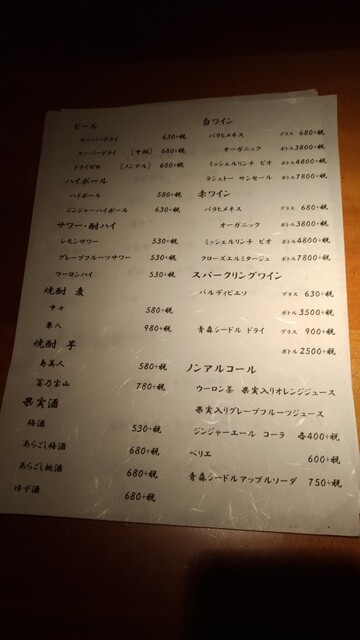 ビール
スーパードライ 630+税
スーパードライ [中瓶] 680+税
ドライゼロ [ノンアル] 600+税
ハイボール
ハイボール 580+税
ジンジャーハイボール 630+税
サワー・酎ハイ
レモンサワー 530+税
グレープフルーツサワー 530+税
ウーロンハイ 530+税
焼酎 麦
中々 580+税
兼八 980+税
焼酎 芋
島美人 580+税
富乃宝山 780+税
果実酒
梅酒 530+税
あらごし梅酒 680+税
あらごし桃酒 680+税
ゆず酒 680+税
白ワイン
パラヒメネス グラス 680+税
オーガニック ボトル3800+税
ミッシェルリンチ ビオ ボトル4800+税
ラシュトー サンセール ボトル7800+税
赤ワイン
パラヒメネス グラス 680+税
オーガニック ボトル3800+税
ミッシェルリンチ ビオ ボトル4800+税
クローズエルミタージュ ボトル7800+税
スパークリングワイン
バルディビエソ グラス 630+税
ボトル3500+税
青森シードル ドライ グラス 900+税
ボトル2500+税
ノンアルコール
ウーロン茶 果実入りオレンジジュース
果実入りグレープフルーツジュース
ジンジャーエール コーラ 各400+税
ペリエ 600+税
青森シードルアップルソーダ 750+税